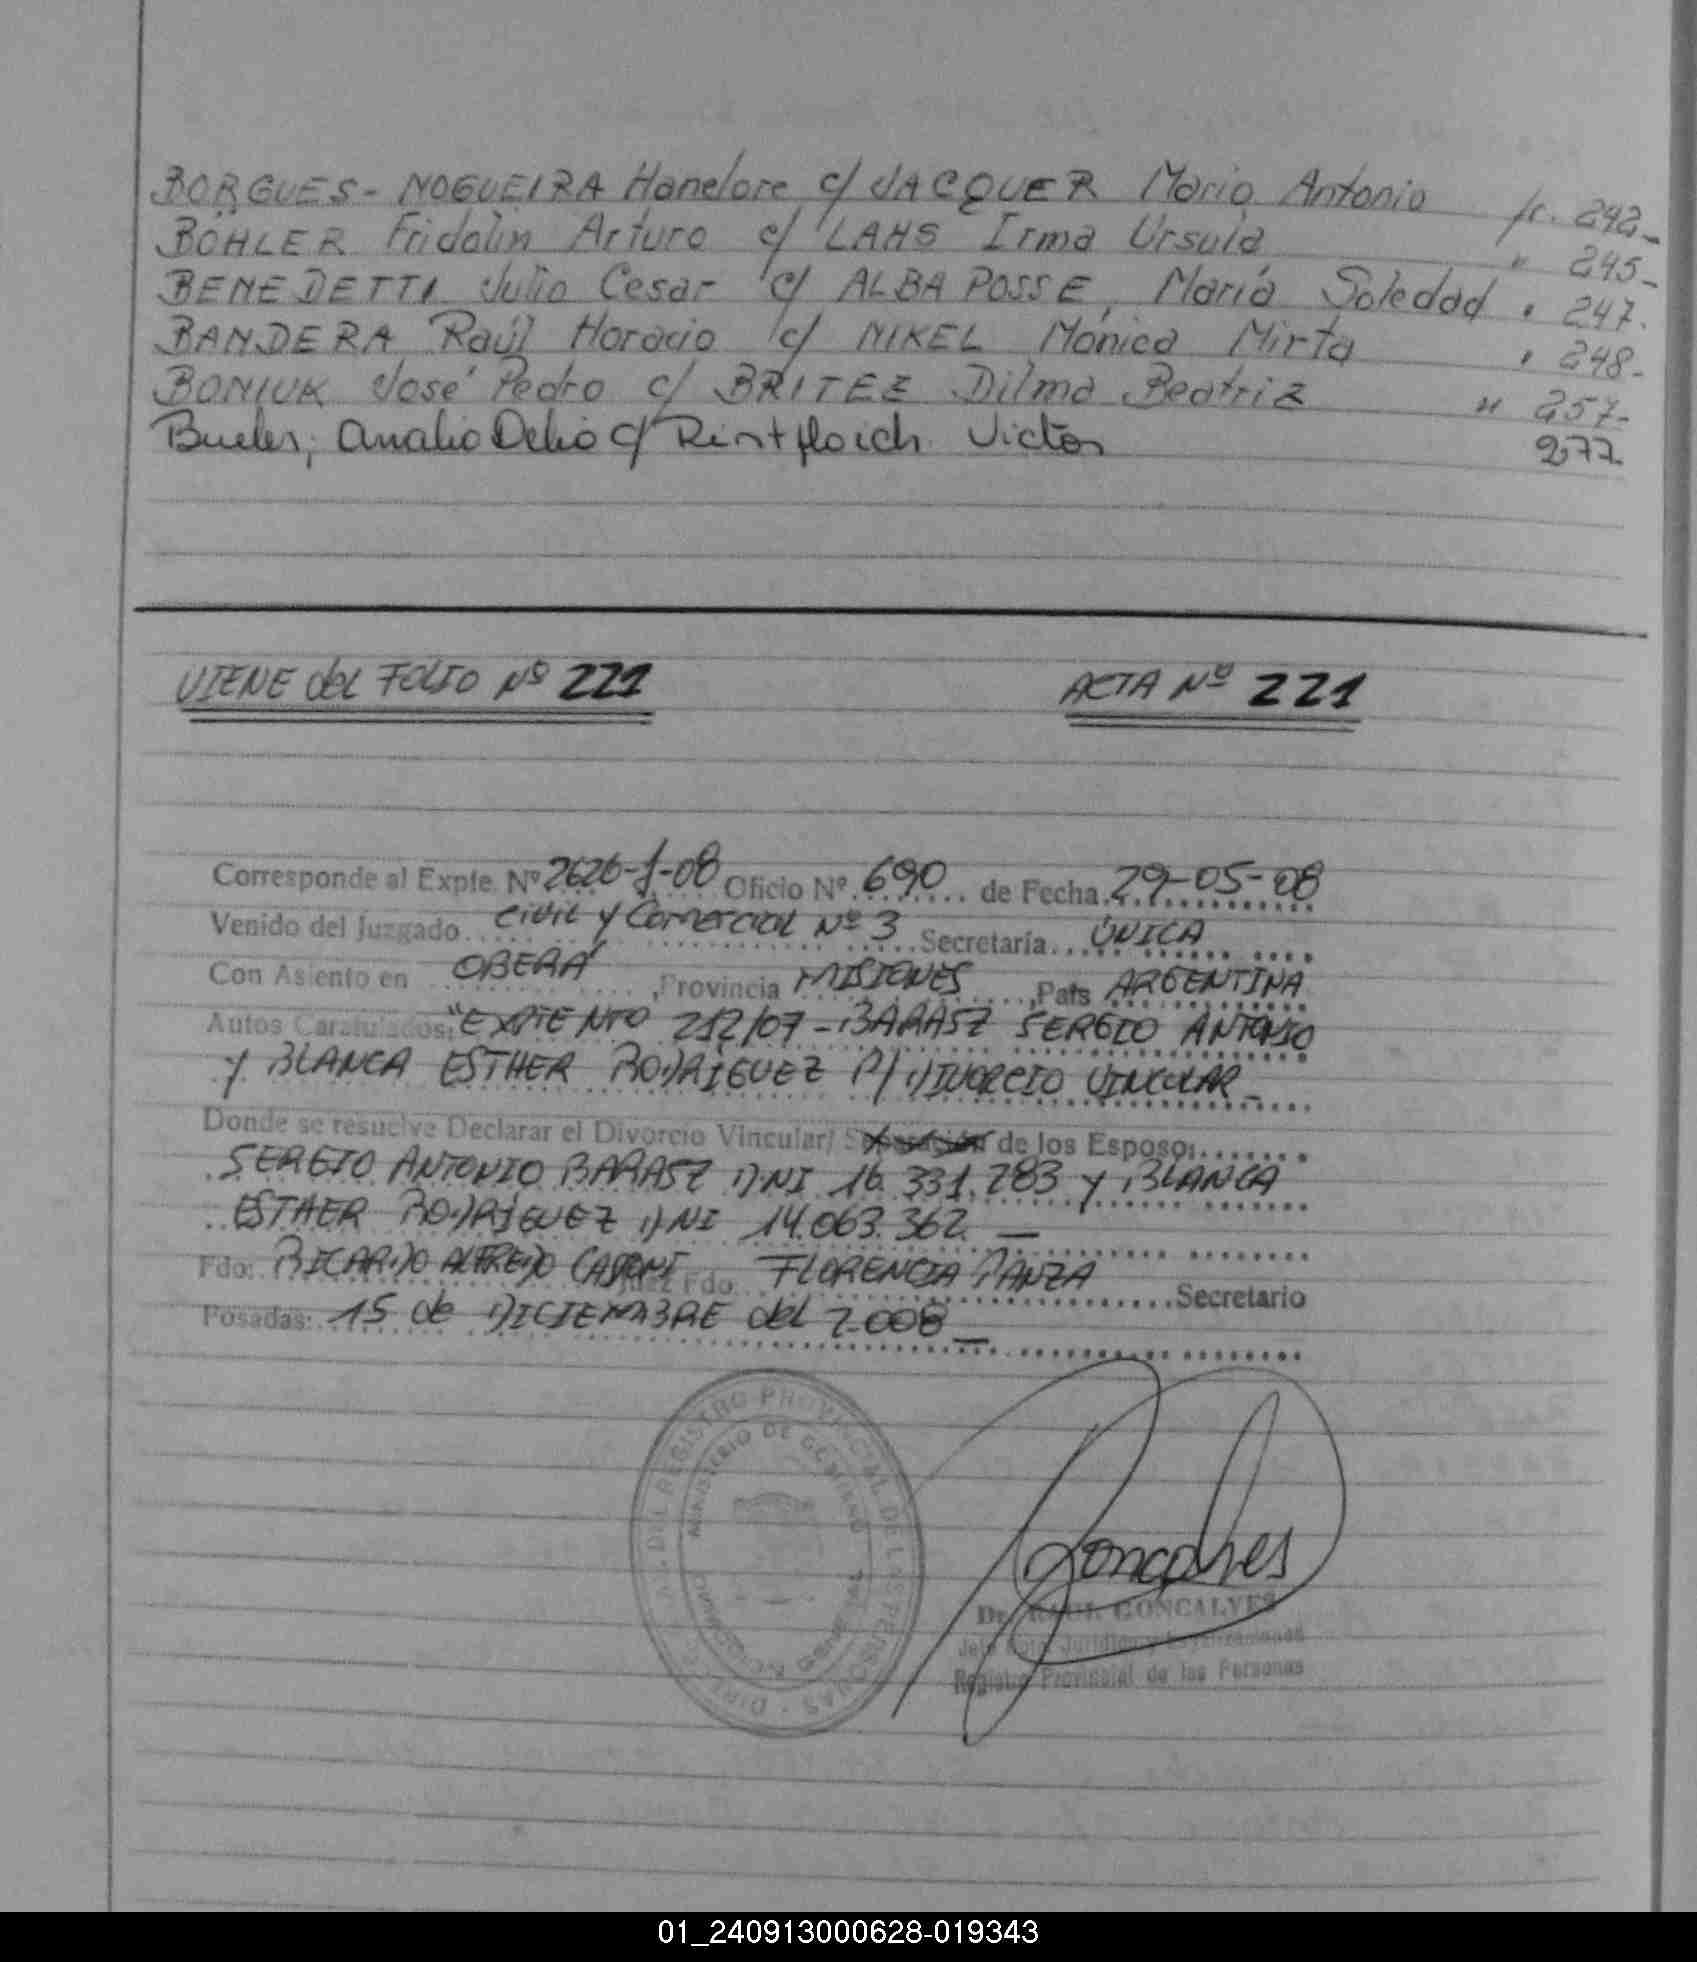 BORGUES - NOGUEIRA Hanelore c/ JACQUER Mario Antonio fc. 242-
BÖHLER Fridolin Arturo c/ LAHS Irma Ursula " 245-
BENEDETTI Julio Cesar c/ ALBA POSSE, María Soledad " 247.
BANDERA Raúl Horacio c/ NIKEL Mónica Mirta " 248-
BONIUK José Pedro c/ BRITEZ Dilma Beatriz " 257-
c/ Victor 277
VIENE del FOLIO Nº 221 ACTA Nº 221
Corresponde al Expte. Nº 2626-J-08 Oficio Nº 690 de Fecha 29-05-08
Venido del Juzgado Civil y Comercial Nº 3 Secretaría ÚNICA
Con Asiento en OBERÁ, Provincia MISIONES, País ARGENTINA
Autos Caratulados: "EXPTE Nº 212/07 - BARASZ SERGIO ANTONIO
y BLANCA ESTHER RODRÍGUEZ P/ DIVORCIO VINCULAR -
Donde se resuelve Declarar el Divorcio Vincular/ Separación de los Esposo:
SERGIO ANTONIO BARASZ DNI 16.331.283 y BLANCA
ESTHER RODRÍGUEZ DNI 14.063.362. —
Fdo: RICARDO ALFREDO CASONI Juez Fdo. FLORENCIA PANZA Secretario
Posadas: 15 de DICIEMBRE del 2.008 —
DIREC. GRAL. DEL REGISTRO PROVINCIAL DE LAS PERSONAS
MINISTERIO DE GOBIERNO
Goncalves
Dr. RAUL GONCALVES
Jefe Dpto. Jurídico y Legalizaciones
Registro Provincial de las Personas
01_240913000628-019343